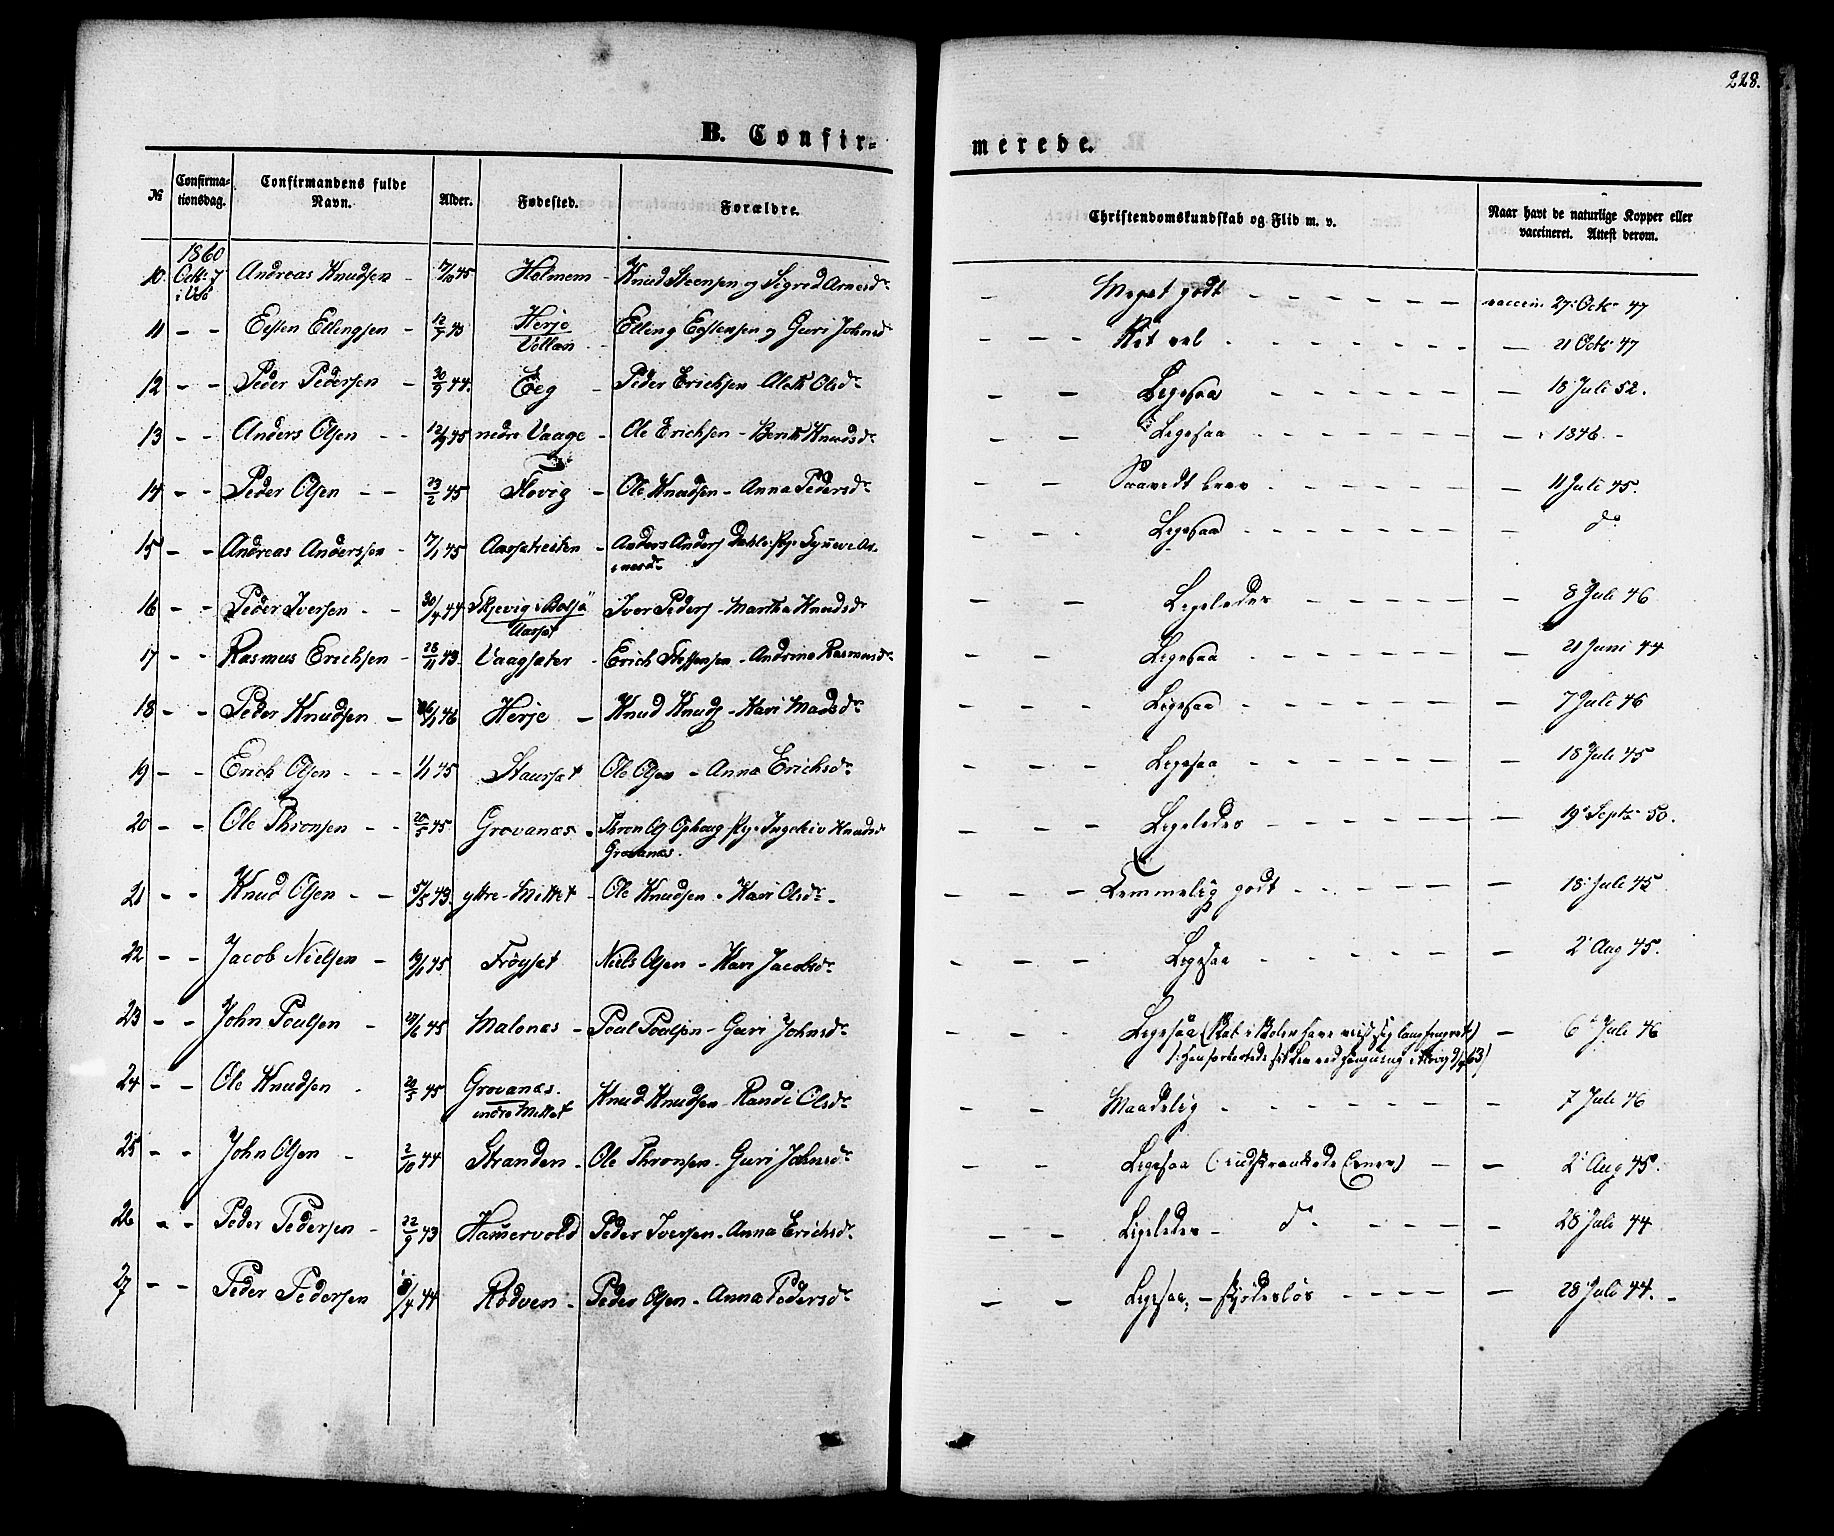 228.
B. Confir-
merede.
№ Confirma- Confirmandens fulde Alder. Fødested. Forældre. Christendomskundskab og Flid m. v. Naar havt de naturlige Kopper eller
tionsdag. Navn. vaccineret. Attest derom.
1860
10. Octb: 7 Andreas Knudsen - 45 Holmem - Knud Steensen og Sigrid Arnesdr - Meget godt - - - - - - vaccin 27. Octbr 47
11 - - Eesten Ellingsen - 43 Herje Elling Eestensen og Guri Johnsd - - - vel - - - - - - - 21 Octb 47
Vollan
12 - - Peder Pedersen - 30/9 44. Eeg - Peder Erichsen - Olsdr - - Ligesaa - - - - - - 18 Juli 52.
13 - - Anders Olsen - - 45 nedre Vaage - Ole Erichsen - Berit Knudsdr - - Ligesaa - - - - - - 1846 -
14 - - Peder Olsen - - 23/2 45 - Ole Knudsen - Anna Pedersdr - - - - - - - - 11 Juli 45.
15 - - Andreas Anderssen - 45 Aarsetreiten - Anders Anders - - Ligesaa - - - - - - - do
16 - - Peder Iversen - - 30/4 44 Skjevig i Bolsö Iver Peders - Martha Knudsdr - - Ligeledes - - - - - - 8 Juli 46
Aarset
17 - - Rasmus Erichsen - 28/11 43 Vaagsæter - Erich Steffensen - Andrine Rasmusd - - Ligesaa - - - - - - 21 Juni 44
18 - - Peder Knudsen - 46 Herje - Knud Knuds - Kari Madsdr - - - Ligesaa - - - - - - 7 Juli 46
19 - - Erich Olsen - - - 1/1 45 Staurset Ole Olsen - Anna Ericksdr - - - Ligesaa - - - - - - 18 Juli 45
20 - - Ole Thronsen - - 20/5 45 Grovanæs - Thron Knudsd - - - Ligeledes - - - - - - 19 Septbr 50.
Grovanæs.
21 - - Knud Olsen - - 5/5 43. ytre-Mittet - Ole Knudsen - Kari Olsdr - - - - Temmelig godt - - - - - - 18. Juli 45
22 - - Jacob Nielsen - 45 Frøyset Niels Olsen - Kari Jacobsdr - - - Ligesaa - - - - - 2 Aug 45.
23 - - John Poulsen - 45 Malenæs - Poul Poulsen - Guri Johnsdr - - Ligesaa - 6 Juli 46
24 - - Ole Knudsen - 45 Grovanæs. Knud Knudsen - Randi Olsdr - - Maadelig - - - - - - - 7 Juli 46
indre Mittet
25 - - John Olsen - 2/10 44 Stranden - Ole Thronsen - Guri Johnsdr - - Ligesaa - - 2 Aug 45.
26 - - Peder Pedersen - 22/9 43 Hamervold Peder Iversen - Anna Erichsdr - - Ligeledes - do - - - - 28 Juli 44
27 - - Peder Pedersen 44 Rødven - Peder Olsen - Anna Pedersdr - - Ligesaa; - - - - - - 28 Juli 44. -